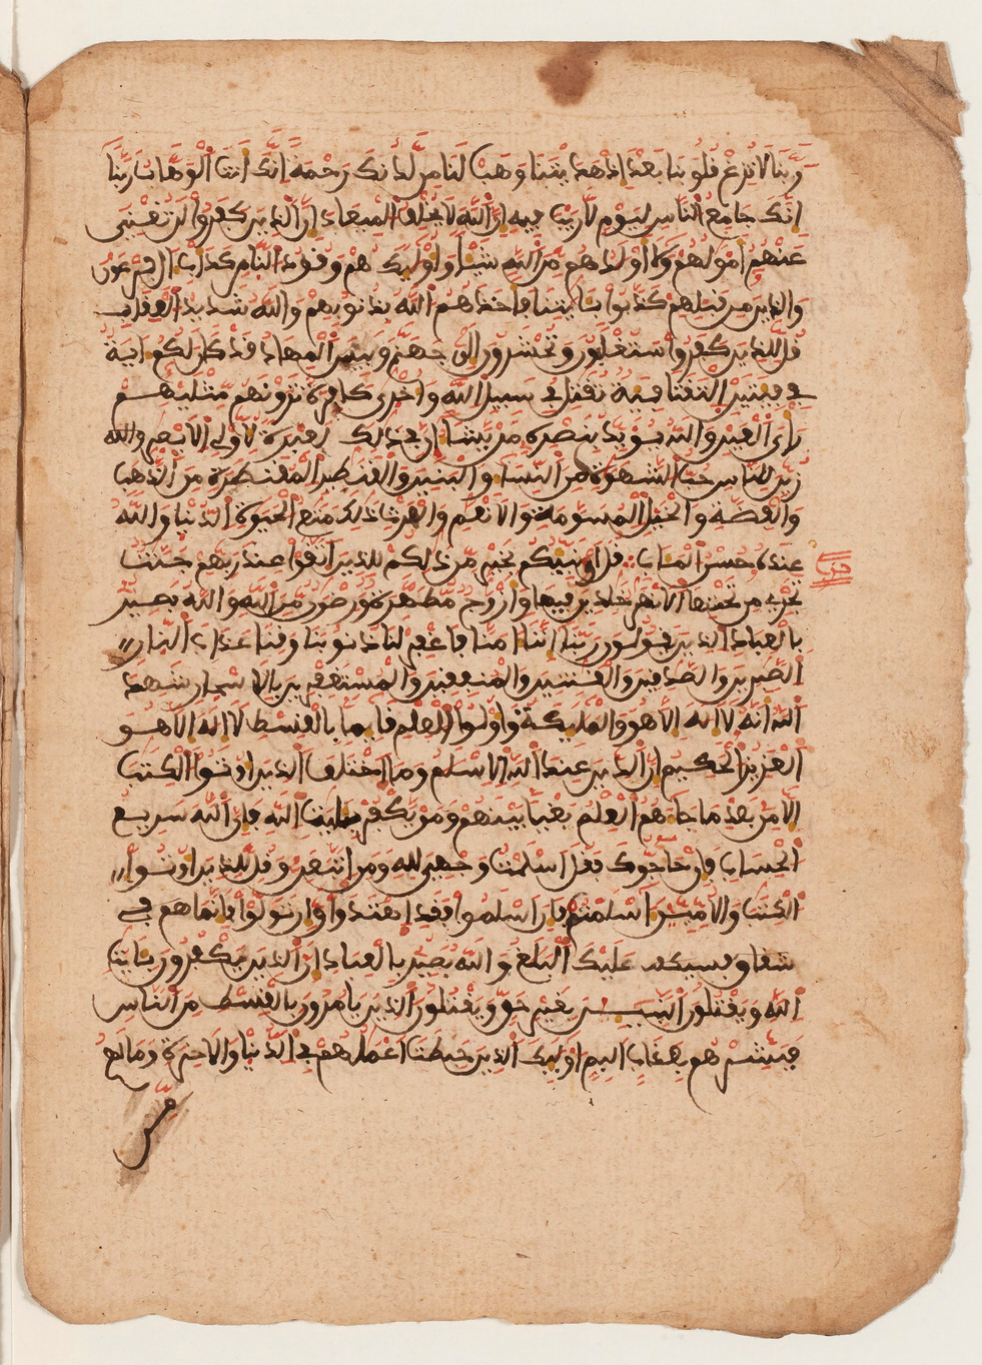 رَبَّنَا لَا تُزِغْ قُلُوبَنَا بَعْدَ إِذْ هَدَيْتَنَا وَهَبْ لَنَا مِن لَّدُنكَ رَحْمَةً إِنَّكَ أَنتَ الْوَهَّابُ رَبَّنَا
إِنَّكَ جَامِعُ النَّاسِ لِيَوْمٍ لَّا رَيْبَ فِيهِ إِنَّ اللَّهَ لَا يُخْلِفُ الْمِيعَادَ إِنَّ الذِينَ كَفَرُوا لَن تُغْنِيَ
عَنْهُمُ أَمْوَٰلُهُمْ وَلَا أَوْلَٰدُهُم مِّنَ اللَّهِ شَيْئًا وَأُوْلَٰئِكَ هُمْ وَقُودُ النَّارِ كَدَأْبِ ءَالِ فِرْعَوْنَ
وَالذِينَ مِن قَبْلِهِمْ كَذَّبُوا بِـَٔايَٰتِنَا فَأَخَذَهُمُ اللَّهُ بِذُنُوبِهِمْ وَاللَّهُ شَدِيدُ الْعِقَابِ
قُل لِّلذِينَ كَفَرُوا سَتُغْلَبُونَ وَتُحْشَرُونَ إِلَىٰ جَهَنَّمَ وَبِيسَ الْمِهَادُ قَدْ كَانَ لَكُمُ ءَايَةٌ
فِي فِئَتَيْنِ الْتَقَتَا فِئَةٌ تُقَٰتِلُ فِي سَبِيلِ اللَّهِ وَأُخْرَىٰ كَافِرَةٌ تَرَوْنَهُم مِّثْلَيْهِمْ
رَأْيَ الْعَيْنِ وَاللَّهُ يُؤَيِّدُ بِنَصْرِهِ مَن يَّشَاءُ إِنَّ فِي ذَٰلِكَ لَعِبْرَةً لِّأُوْلِي الْأَبْصَٰرِ
زُيِّنَ لِلنَّاسِ حُبُّ الشَّهَوَٰتِ مِنَ النِّسَاءِ وَالْبَنِينَ وَالْقَنَٰطِيرِ الْمُقَنطَرَةِ مِنَ الذَّهَبِ
وَالْفِضَّةِ وَالْخَيْلِ الْمُسَوَّمَةِ وَالْأَنْعَٰمِ وَالْحَرْثِ ذَٰلِكَ مَتَٰعُ الْحَيَوٰةِ الدُّنْيَا وَاللَّهُ
عِندَهُ حُسْنُ الْمَـَٔابِ قُلْ أَؤُنَبِّئُكُم بِخَيْرٍ مِّن ذَٰلِكُمْ لِلذِينَ اتَّقَوْا عِندَ رَبِّهِمْ جَنَّٰتٌ
تَجْرِي مِن تَحْتِهَا الْأَنْهَٰرُ خَٰلِدِينَ فِيهَا وَأَزْوَٰجٌ مُّطَهَّرَةٌ وَرِضْوَٰنٌ مِّنَ اللَّهِ وَاللَّهُ بَصِيرٌ
بِالْعِبَادِ الذِينَ يَقُولُونَ رَبَّنَا إِنَّنَا ءَامَنَّا فَاغْفِرْ لَنَا ذُنُوبَنَا وَقِنَا عَذَابَ النَّارِ
الصَّٰبِرِينَ وَالصَّٰدِقِينَ وَالْقَٰنِتِينَ وَالْمُنفِقِينَ وَالْمُسْتَغْفِرِينَ بِالْأَسْحَارِ شَهِدَ
اللَّهُ أَنَّهُ لَا إِلَٰهَ إِلَّا هُوَ وَالْمَلَٰئِكَةُ وَأُوْلُوا الْعِلْمِ قَائِمًا بِالْقِسْطِ لَا إِلَٰهَ إِلَّا هُوَ
الْعَزِيزُ الْحَكِيمُ إِنَّ الدِّينَ عِندَ اللَّهِ الْإِسْلَٰمُ وَمَا اخْتَلَفَ الذِينَ أُوتُوا الْكِتَٰبَ
إِلَّا مِن بَعْدِ مَا جَاءَهُمُ الْعِلْمُ بَغْيًا بَيْنَهُمْ وَمَن يَّكْفُرْ بِـَٔايَٰتِ اللَّهِ فَإِنَّ اللَّهَ سَرِيعُ
الْحِسَابِ فَإِنْ حَاجُّوكَ فَقُلْ أَسْلَمْتُ وَجْهِيَ لِلهِ وَمَنِ اتَّبَعَنِ وَقُل لِّلذِينَ أُوتُوا
الْكِتَٰبَ وَالْأُمِّيِّينَ ءَأَسْلَمْتُمْ فَإِنْ أَسْلَمُوا فَقَدِ اهْتَدَوا وَّإِن تَوَلَّوْا فَإِنَّمَا هُمْ فِي
شقاق فسيكف عَلَيْكَ الْبَلَٰغُ وَاللَّهُ بَصِيرٌ بِالْعِبَادِ إِنَّ الذِينَ يَكْفُرُونَ بِـَٔايَٰتِ
اللَّهِ وَيَقْتُلُونَ النَّبِيِّينَ بِغَيْرِ حَقٍّ وَيَقْتُلُونَ الذِينَ يَامُرُونَ بِالْقِسْطِ مِنَ النَّاسِ
فَبَشِّرْهُم بِعَذَابٍ أَلِيمٍ أُوْلَٰئِكَ الذِينَ حَبِطَتْ أَعْمَٰلُهُمْ فِي الدُّنْيَا وَالْأَخِرَةِ وَمَا لَهُم
مِّن